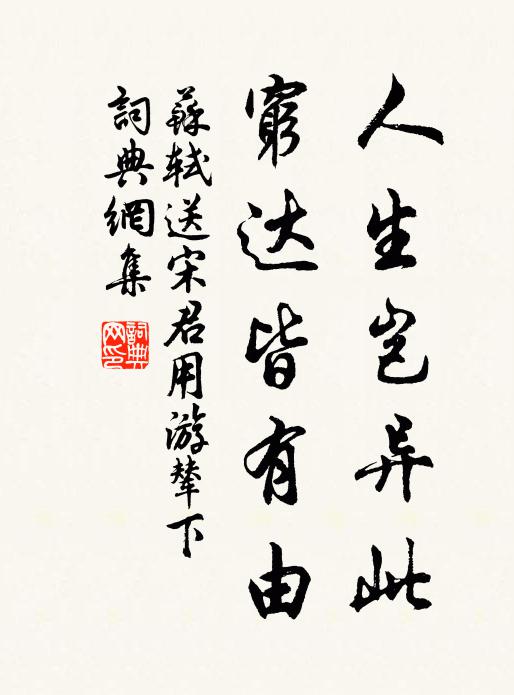 人生岂异此
窮达皆有由
蘇轼送宋君用游辇下
詞典網集
詞典网印